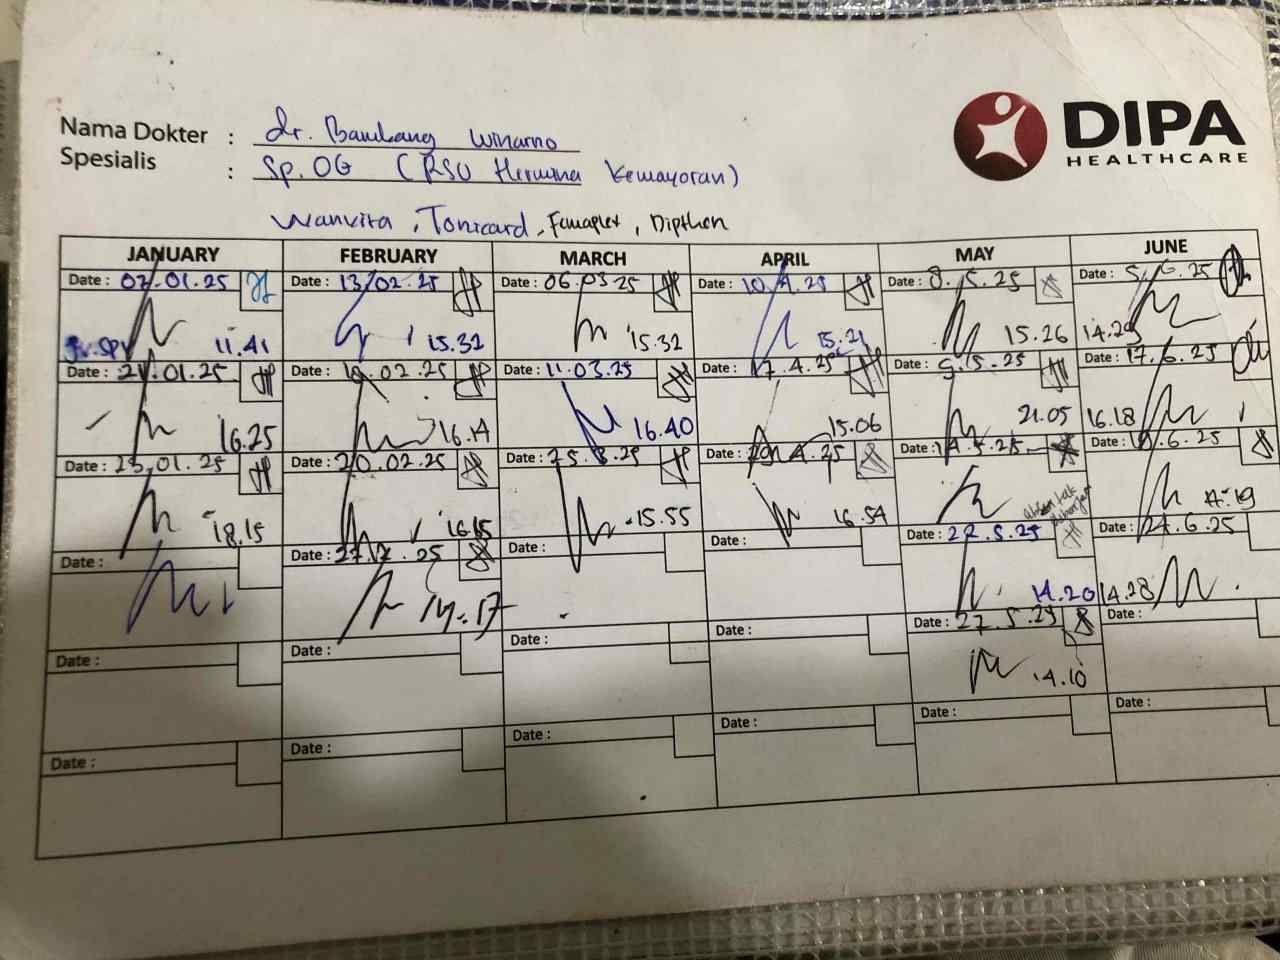 DIPA
HEALTHCARE
Nama Dokter : dr. Bambang Winarno
Spesialis : Sp.OG (RSU Hermina Kemayoran)
Wanvita, Tonicard, Femaplex, Dipthen
JANUARY FEBRUARY MARCH APRIL MAY JUNE
Date : 02.01.25 Date : 13/02.25 Date : 06.03.25 Date : 10.4.25 Date : 8.5.25 Date : 5.6.25
11.41 15.32 15.32 15.21 15.26 14.29
Date : 21.01.25 Date : 02.25 Date : 11.03.25 Date : 17.4.25 Date : 9.5.25 Date : 17.6.25
16.25 16.14 16.40 15.06 21.05 16.18
Date : 23.01.25 Date : 20.02.25 Date : 25.3.25 Date : 29.4.25 Date : 14.5.25 Date : 6.25
18.15 16.15 15.55 16.54 19
Date : Date : 27.2.25 Date : Date : Date : 22.5.25 Date : 24.6.25
14.17 14.20 14.28
Date : Date : Date : Date : Date : 27.5.25 Date :
14.10
Date : Date : Date : Date : Date : Date :